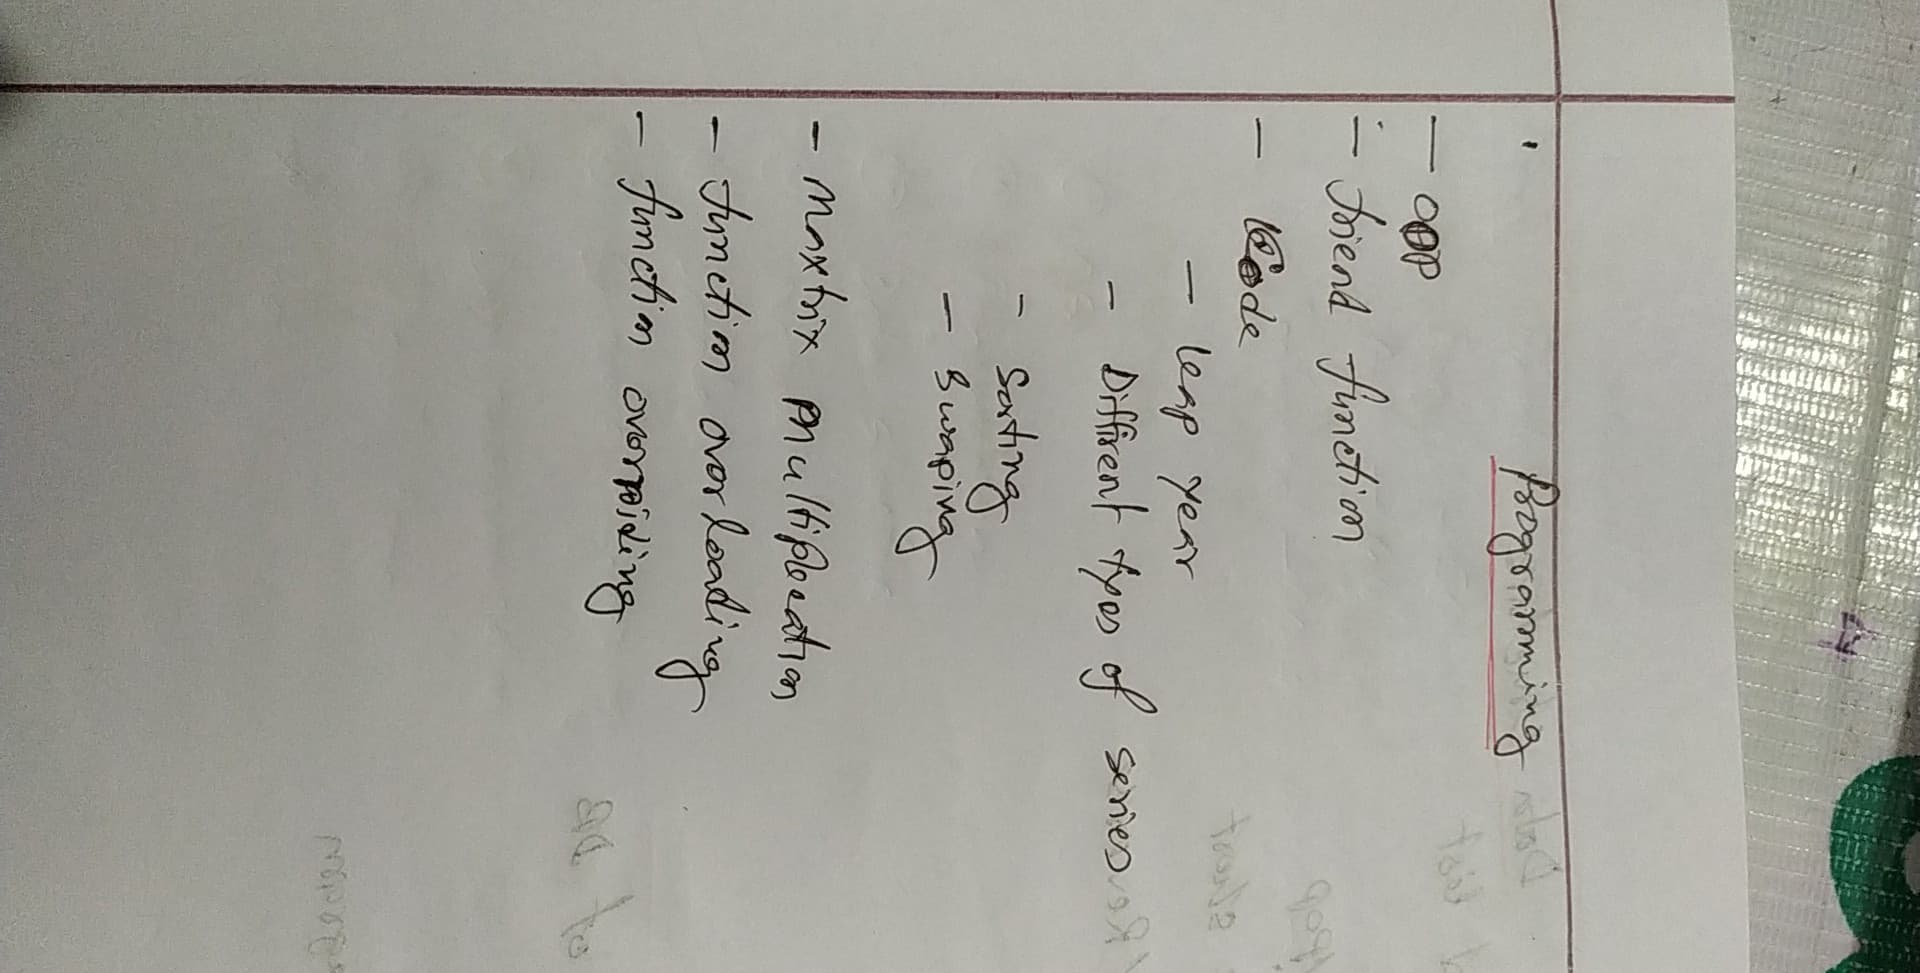 Programming
- OOP
- friend function
- Code
- leap year
- Different types of series
- Sorting
- Swaping
- Maxtrix Multiplication
- function overloading
- function overriding